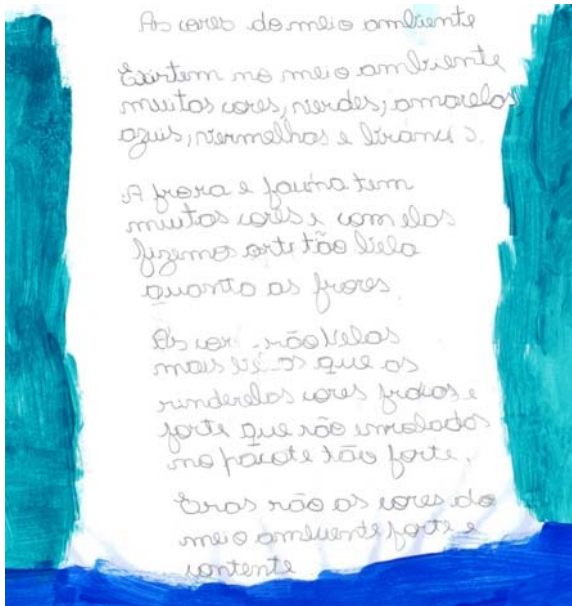 As cores do meio ambiente
Existem no meio ambiente
muitas cores, verdes, amarelos,
azuis, vermelhos e
A frora e fauna tem
muitas cores e com elas
fizemos arte tão bela
quanto as frores
As são belas
mais que as
cores fracas e
forte que são enroladas
no pacote tão forte.
Eras são as cores do
meio ambiente forte e
contente